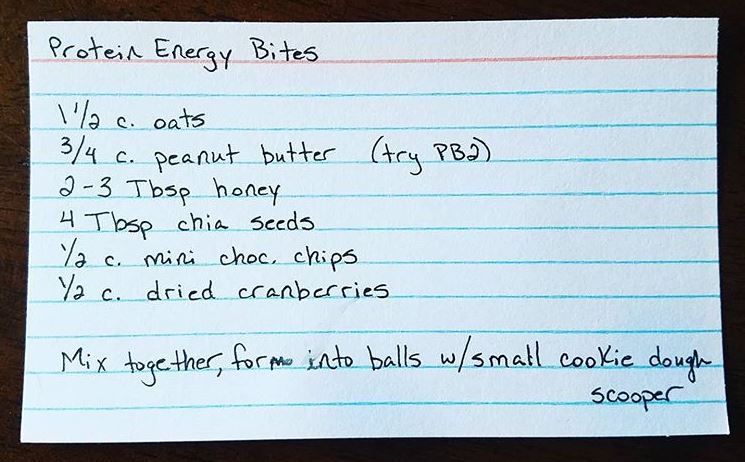 Protein Energy Bites
1 1/2 c. oats
3/4 c. peanut butter (try PB2)
2-3 Tbsp honey
4 Tbsp chia seeds
1/2 c. mini choc. chips
1/2 c. dried cranberries
Mix together, form into balls w/small cookie dough
scooper